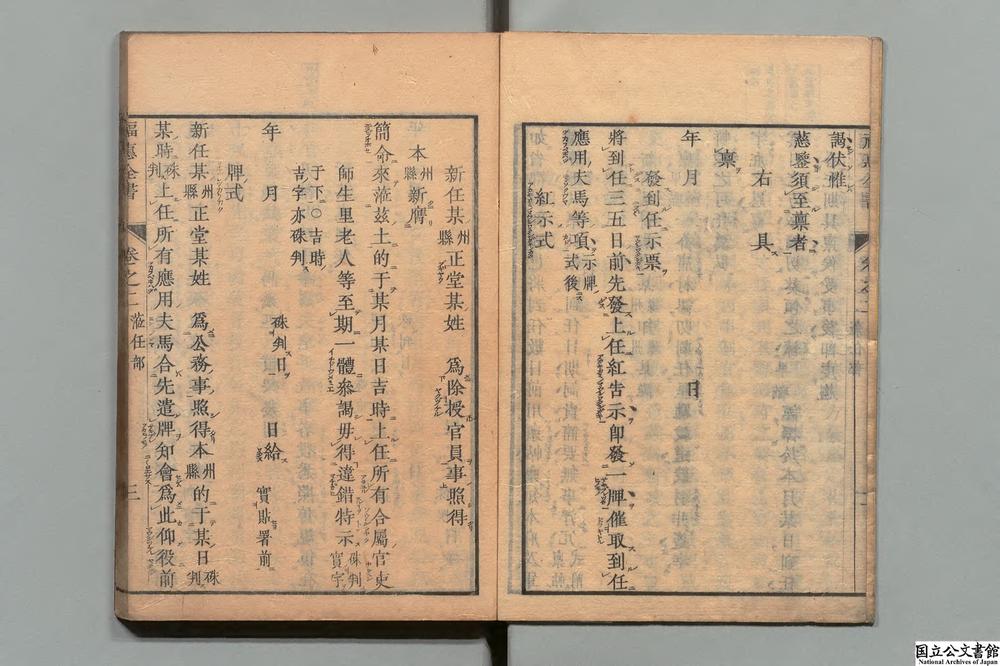 謁伏惟
慈鑒須至稟者
右具
稟
年月　日
發到任示票
將到任三五日前先發上任紅告示卽發一牌催取到任
應用夫馬等項示牌式後
紅示式
新任某州縣正堂某姓　爲除授官員事照得
本州縣新膺
簡命來蒞茲土的于某月某日吉時上任所有合屬官吏
師生里老人等至期一體參謁毋得違錯特示硃判實字
于下○吉時
吉字亦硃判
硃判日
年　月　日給　實貼署前
牌式
新任某州縣正堂某姓　爲公務事照得本州縣的于某日硃判
某時硃判上任所有應用夫馬合先遣牌知會爲此仰役前
福惠全書　卷之二　蒞任部　三
国立公文書館
National Archives of Japan